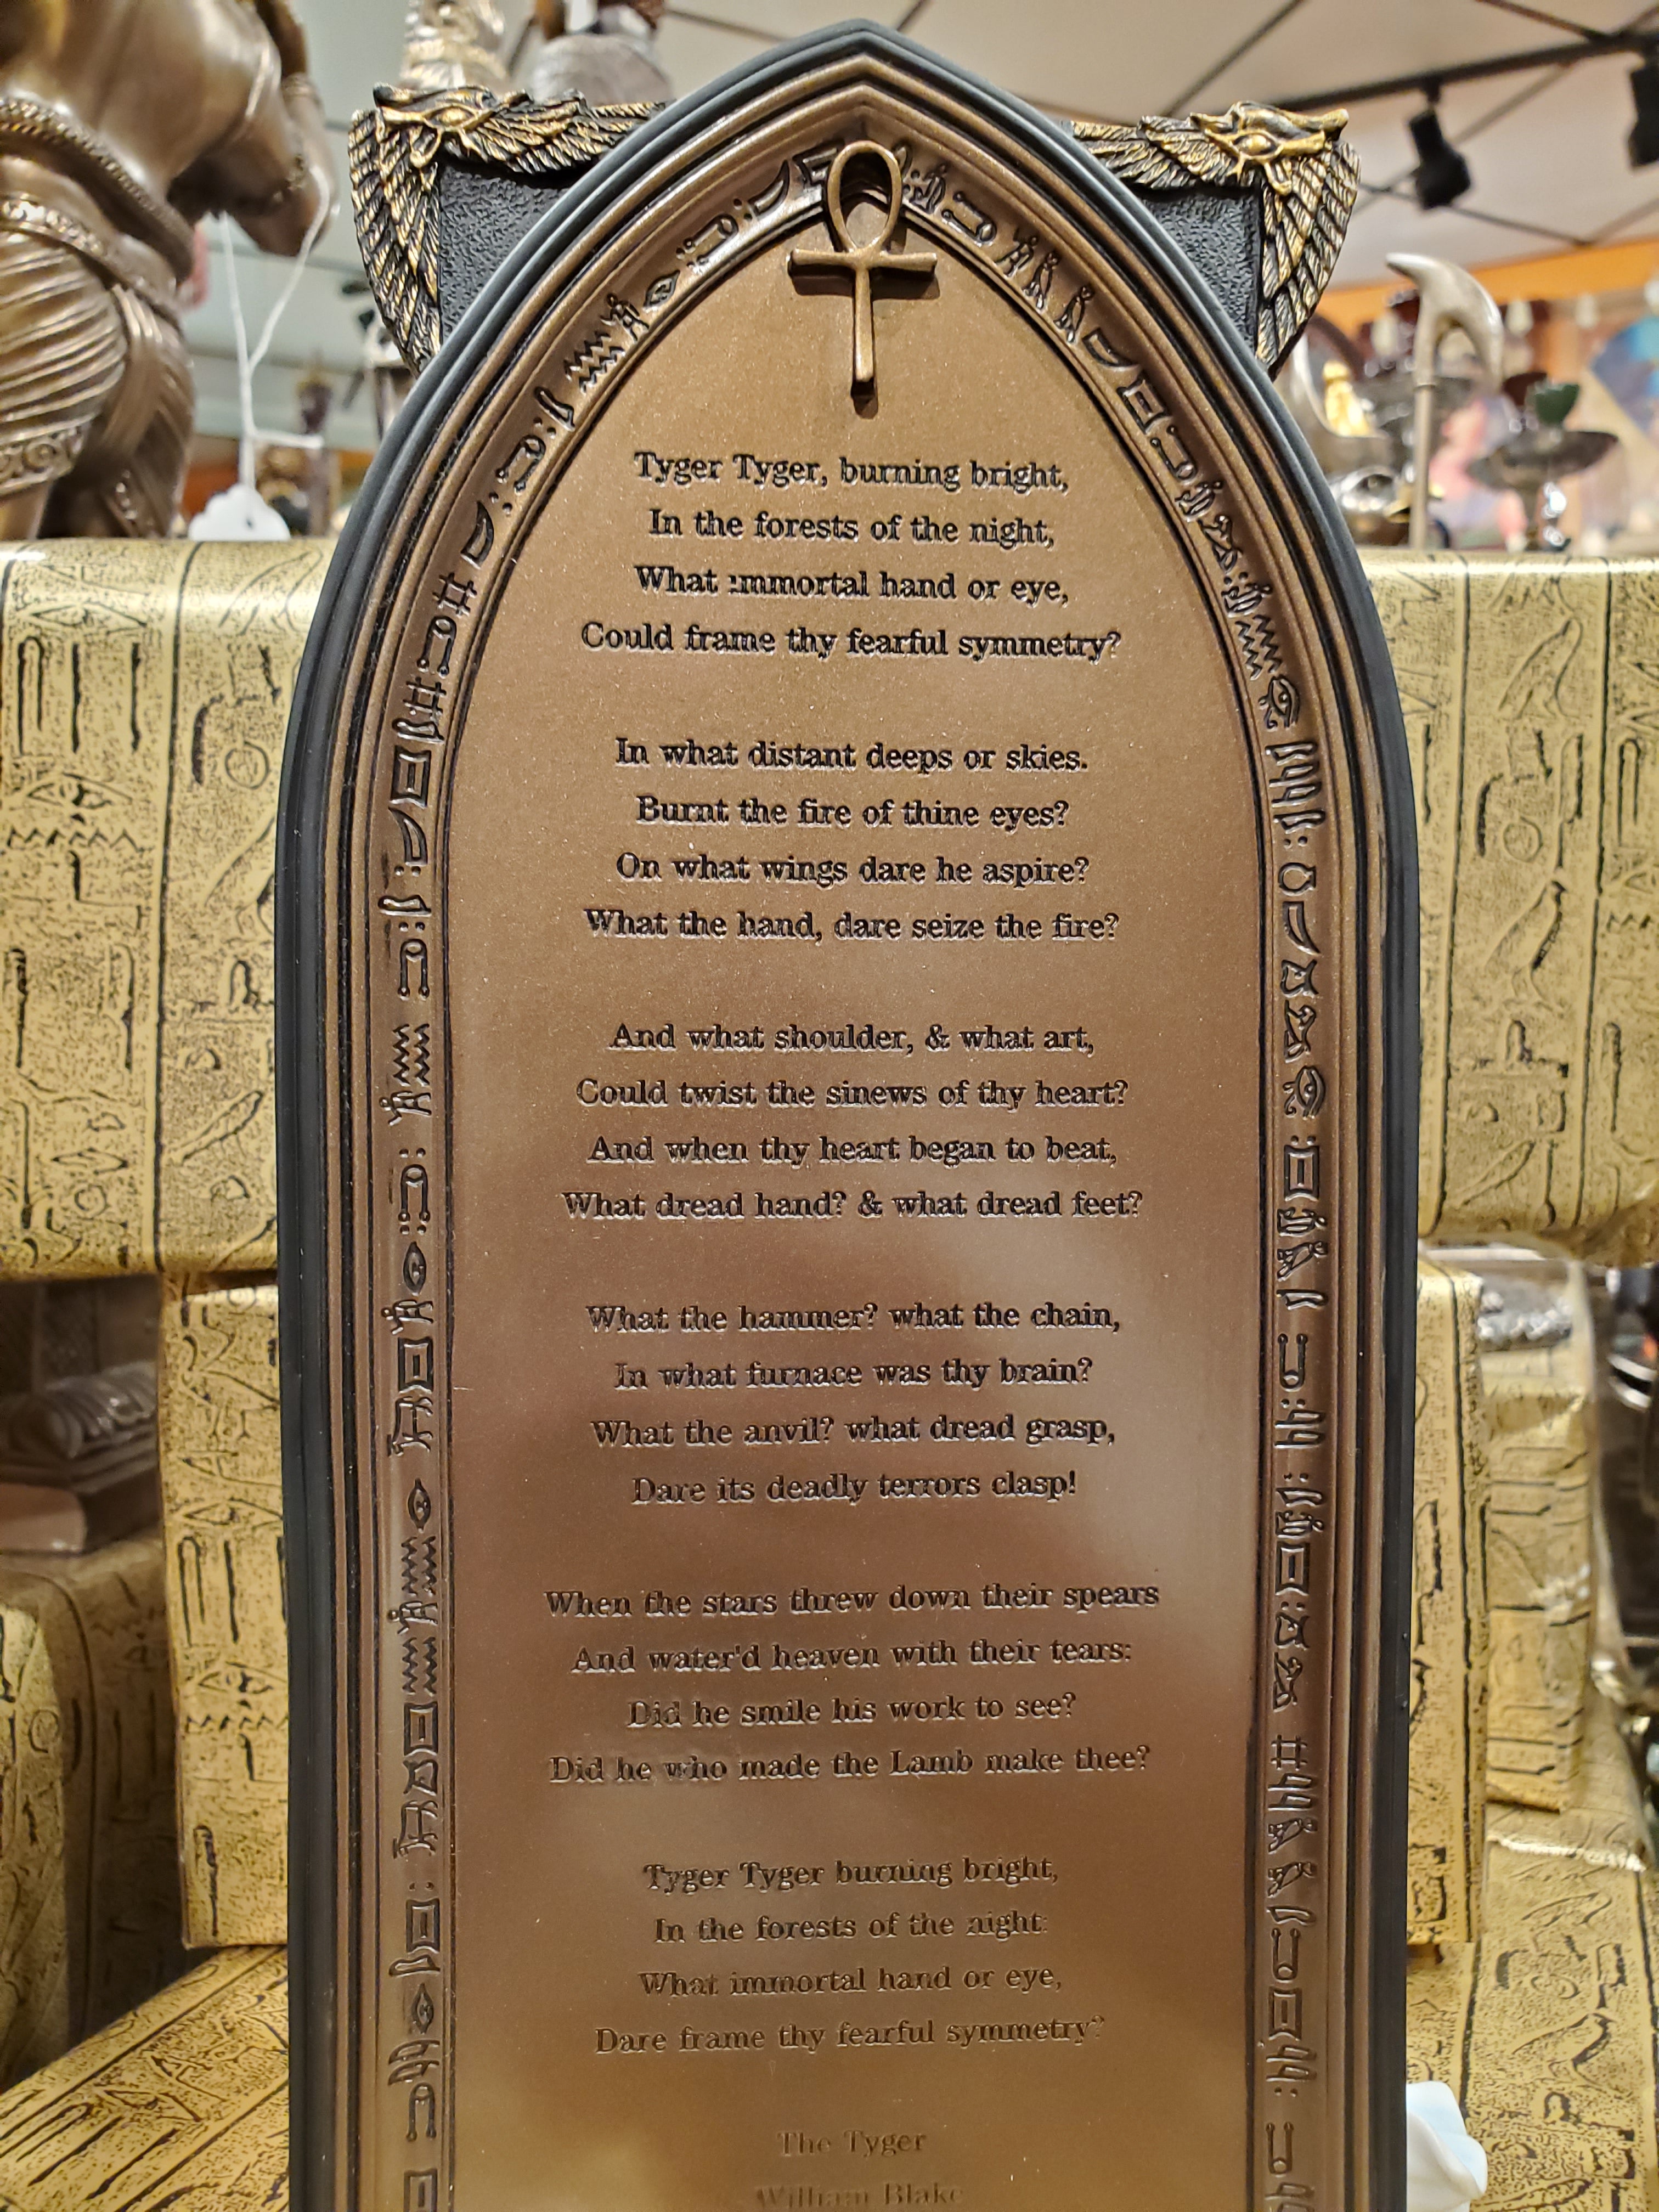 Tyger Tyger, burning bright,
In the forests of the night,
What immortal hand or eye,
Could frame thy fearful symmetry?
In what distant deeps or skies.
Burnt the fire of thine eyes?
On what wings dare he aspire?
What the hand, dare seize the fire?
And what shoulder, & what art,
Could twist the sinews of thy heart?
And when thy heart began to beat,
What dread hand? & what dread feet?
What the hammer? what the chain,
In what furnace was thy brain?
What the anvil? what dread grasp,
Dare its deadly terrors clasp!
When the stars threw down their spears
And water'd heaven with their tears:
Did he smile his work to see?
Did he who made the Lamb make thee?
Tyger Tyger burning bright,
In the forests of the night:
What immortal hand or eye,
Dare frame thy fearful symmetry?
The Tyger
William Blake